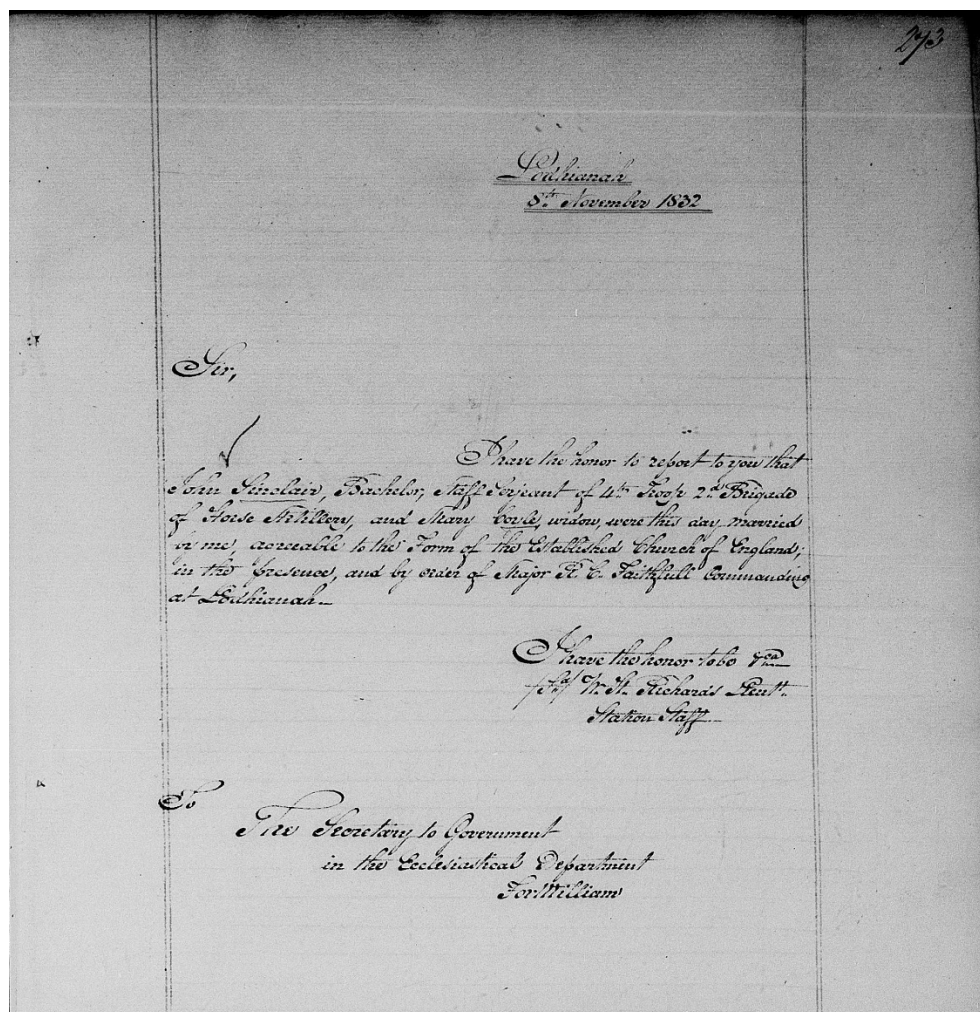 273
Lodhianah
8th November 1832
Sir,
I have the honor to report to you that
John Sinclair, Bachelor, Staff Serjeant of 4th Troop 2nd Brigade
of Horse Artillery, and Mary Coyle, widow, were this day married
by me, agreeable to the Form of the Established Church of England;
in the presence, and by order of Major R. C. Faithfull Commanding
at Lodhianah
I have the honor to be &ca
W. St. Richards Lieutt.
Station Staff
To
The Secretary to Government
in the Ecclesiastical Department
Fort William